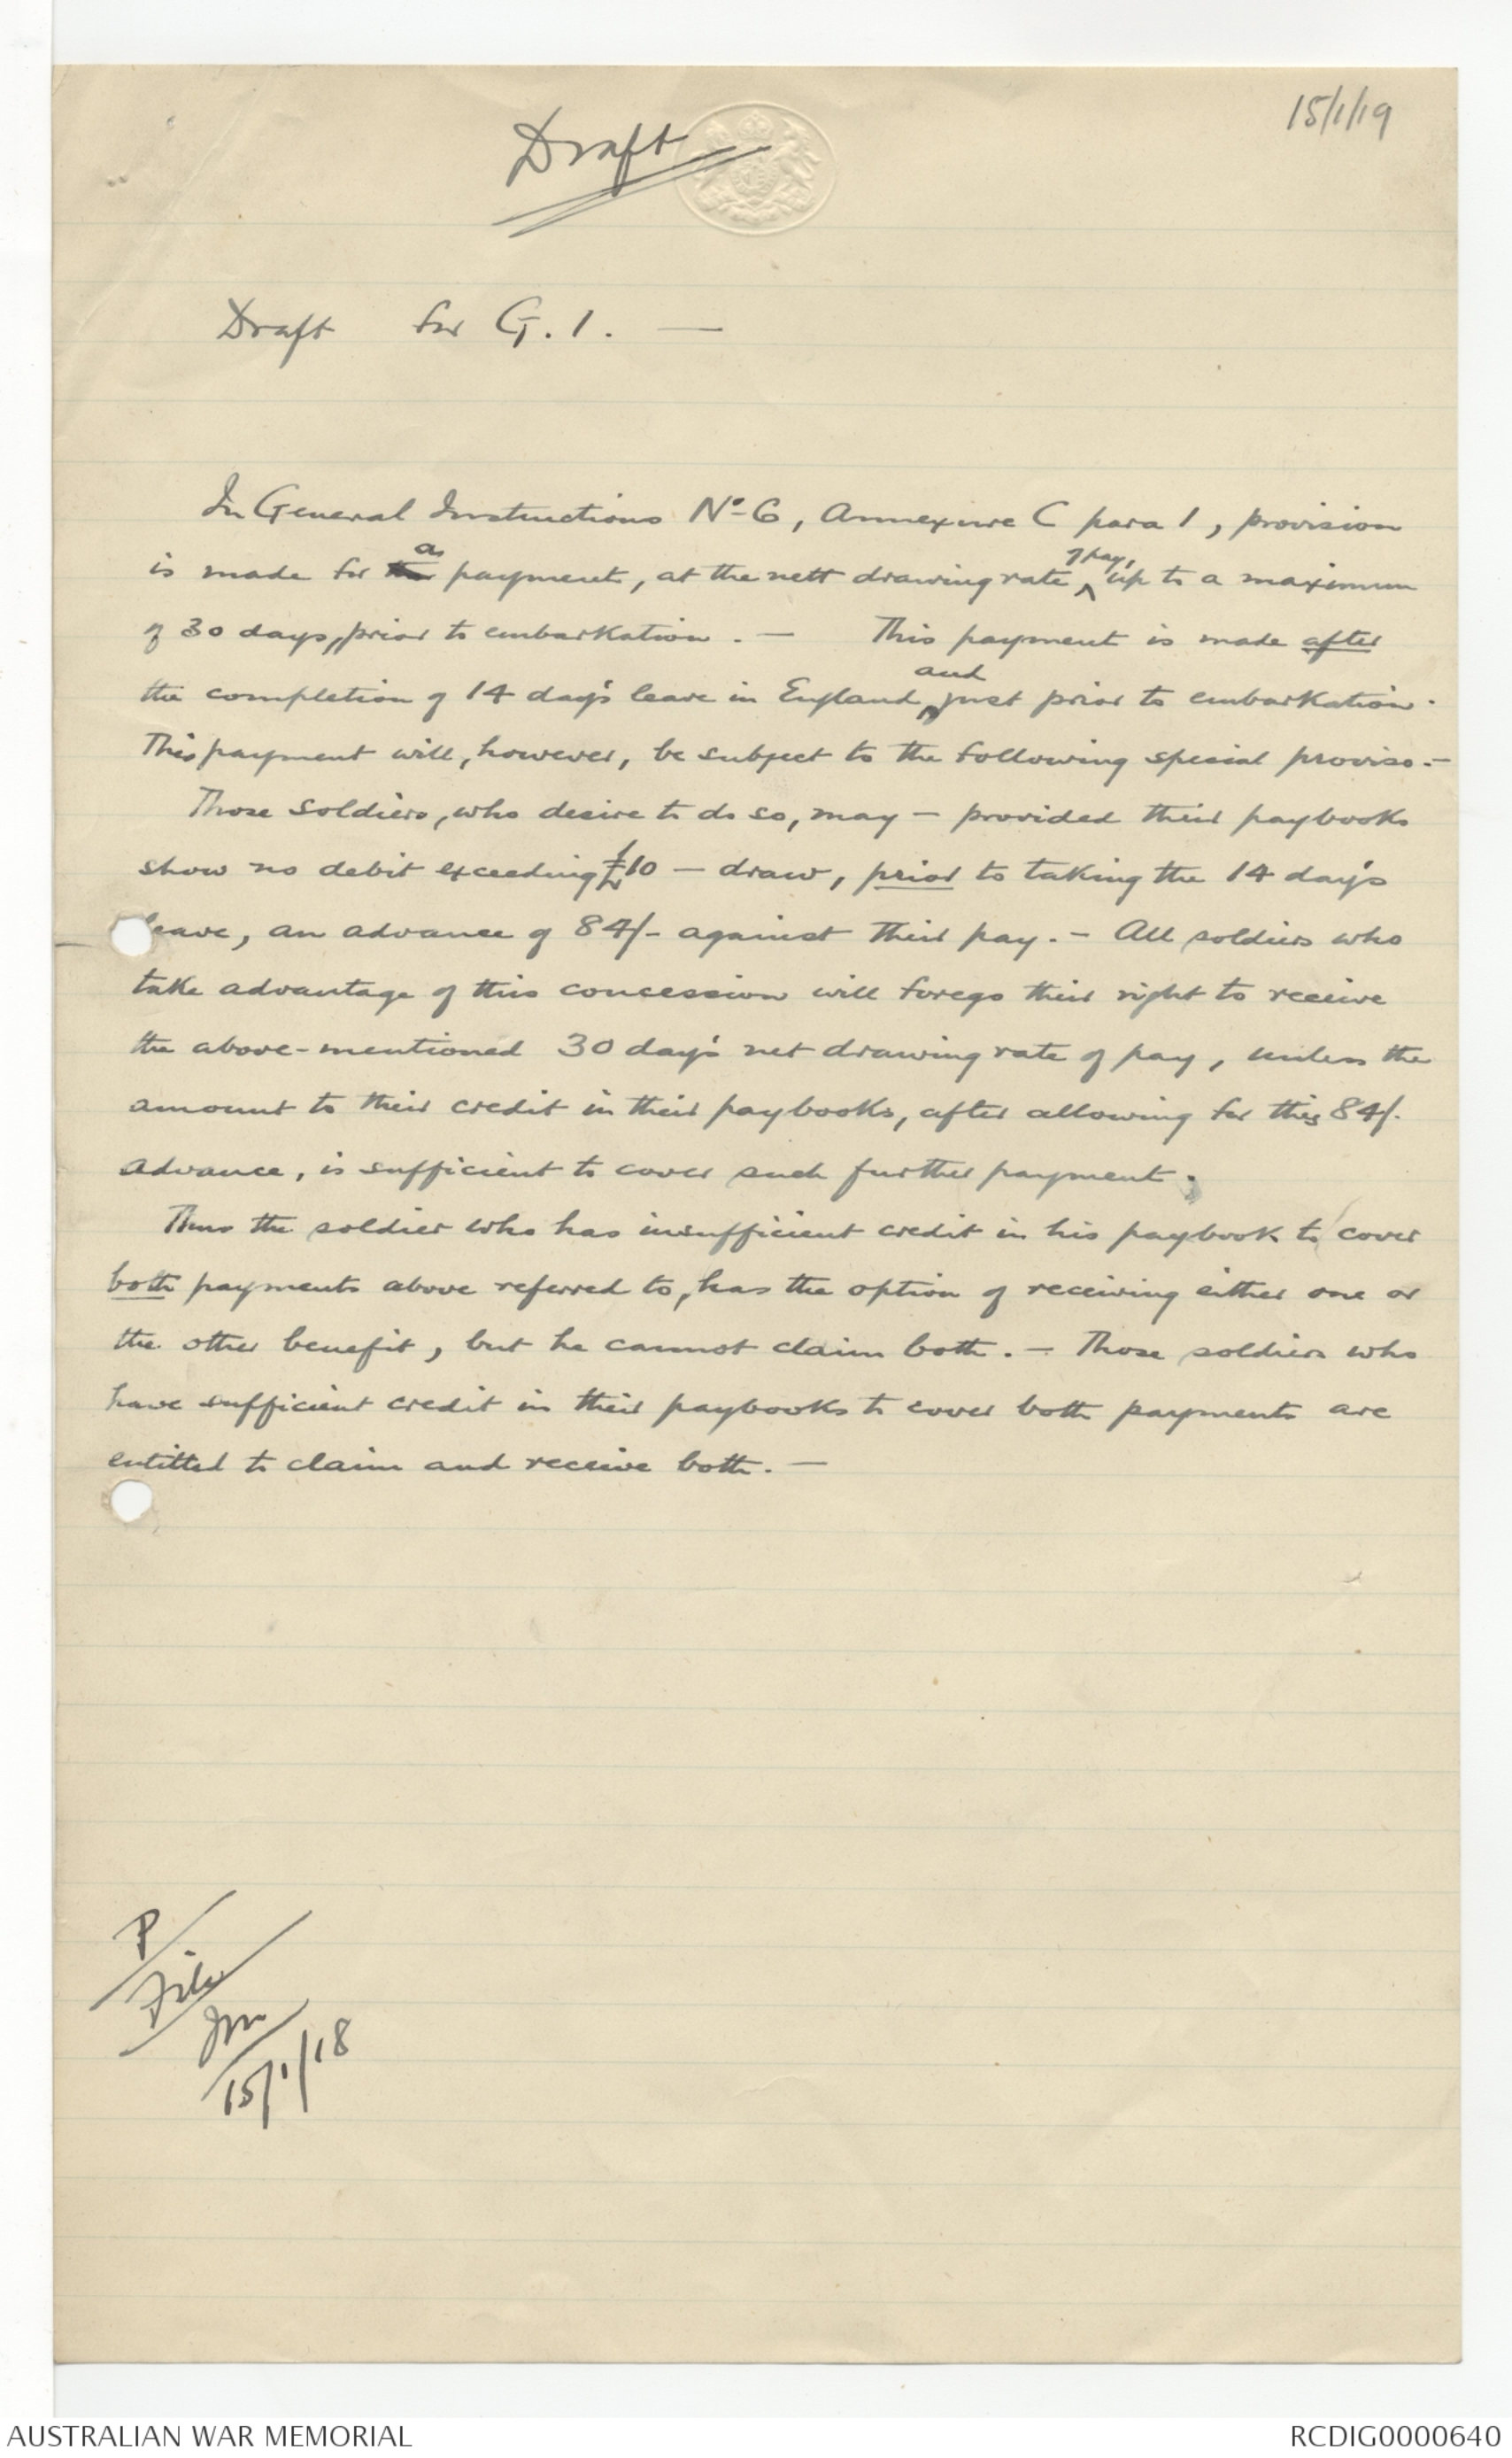 15/1/19
Draft
Draft for G.I. —
In General Instructions No 6, Annexure C para 1, provision
is made for a payment, at the nett drawing rate of pay, up to a maximum
of 30 days, prior to embarkation. — This payment is made after
the completion of 14 day's leave in England and just prior to embarkation.
This payment will, however, be subject to the following special proviso.—
Those soldiers, who desire to do so, may — provided their paybooks
show no debit exceeding £10 — draw, prior to taking the 14 day's
leave, an advance of 84/- against their pay. — All soldiers who
take advantage of this concession will forego their right to receive
the above-mentioned 30 day's net drawing rate of pay, unless the
amount to their credit in their paybooks, after allowing for this 84/-
advance, is sufficient to cover such further payment.
Thus the soldier who has insufficient credit in his paybook to cover
both payments above referred to, has the option of receiving either one or
the other benefit, but he cannot claim both. — Those soldiers who
have sufficient credit in their paybooks to cover both payments are
entitled to claim and receive both. —
P
File
JM
15/1/18
AUSTRALIAN WAR MEMORIAL
RCDIG0000640